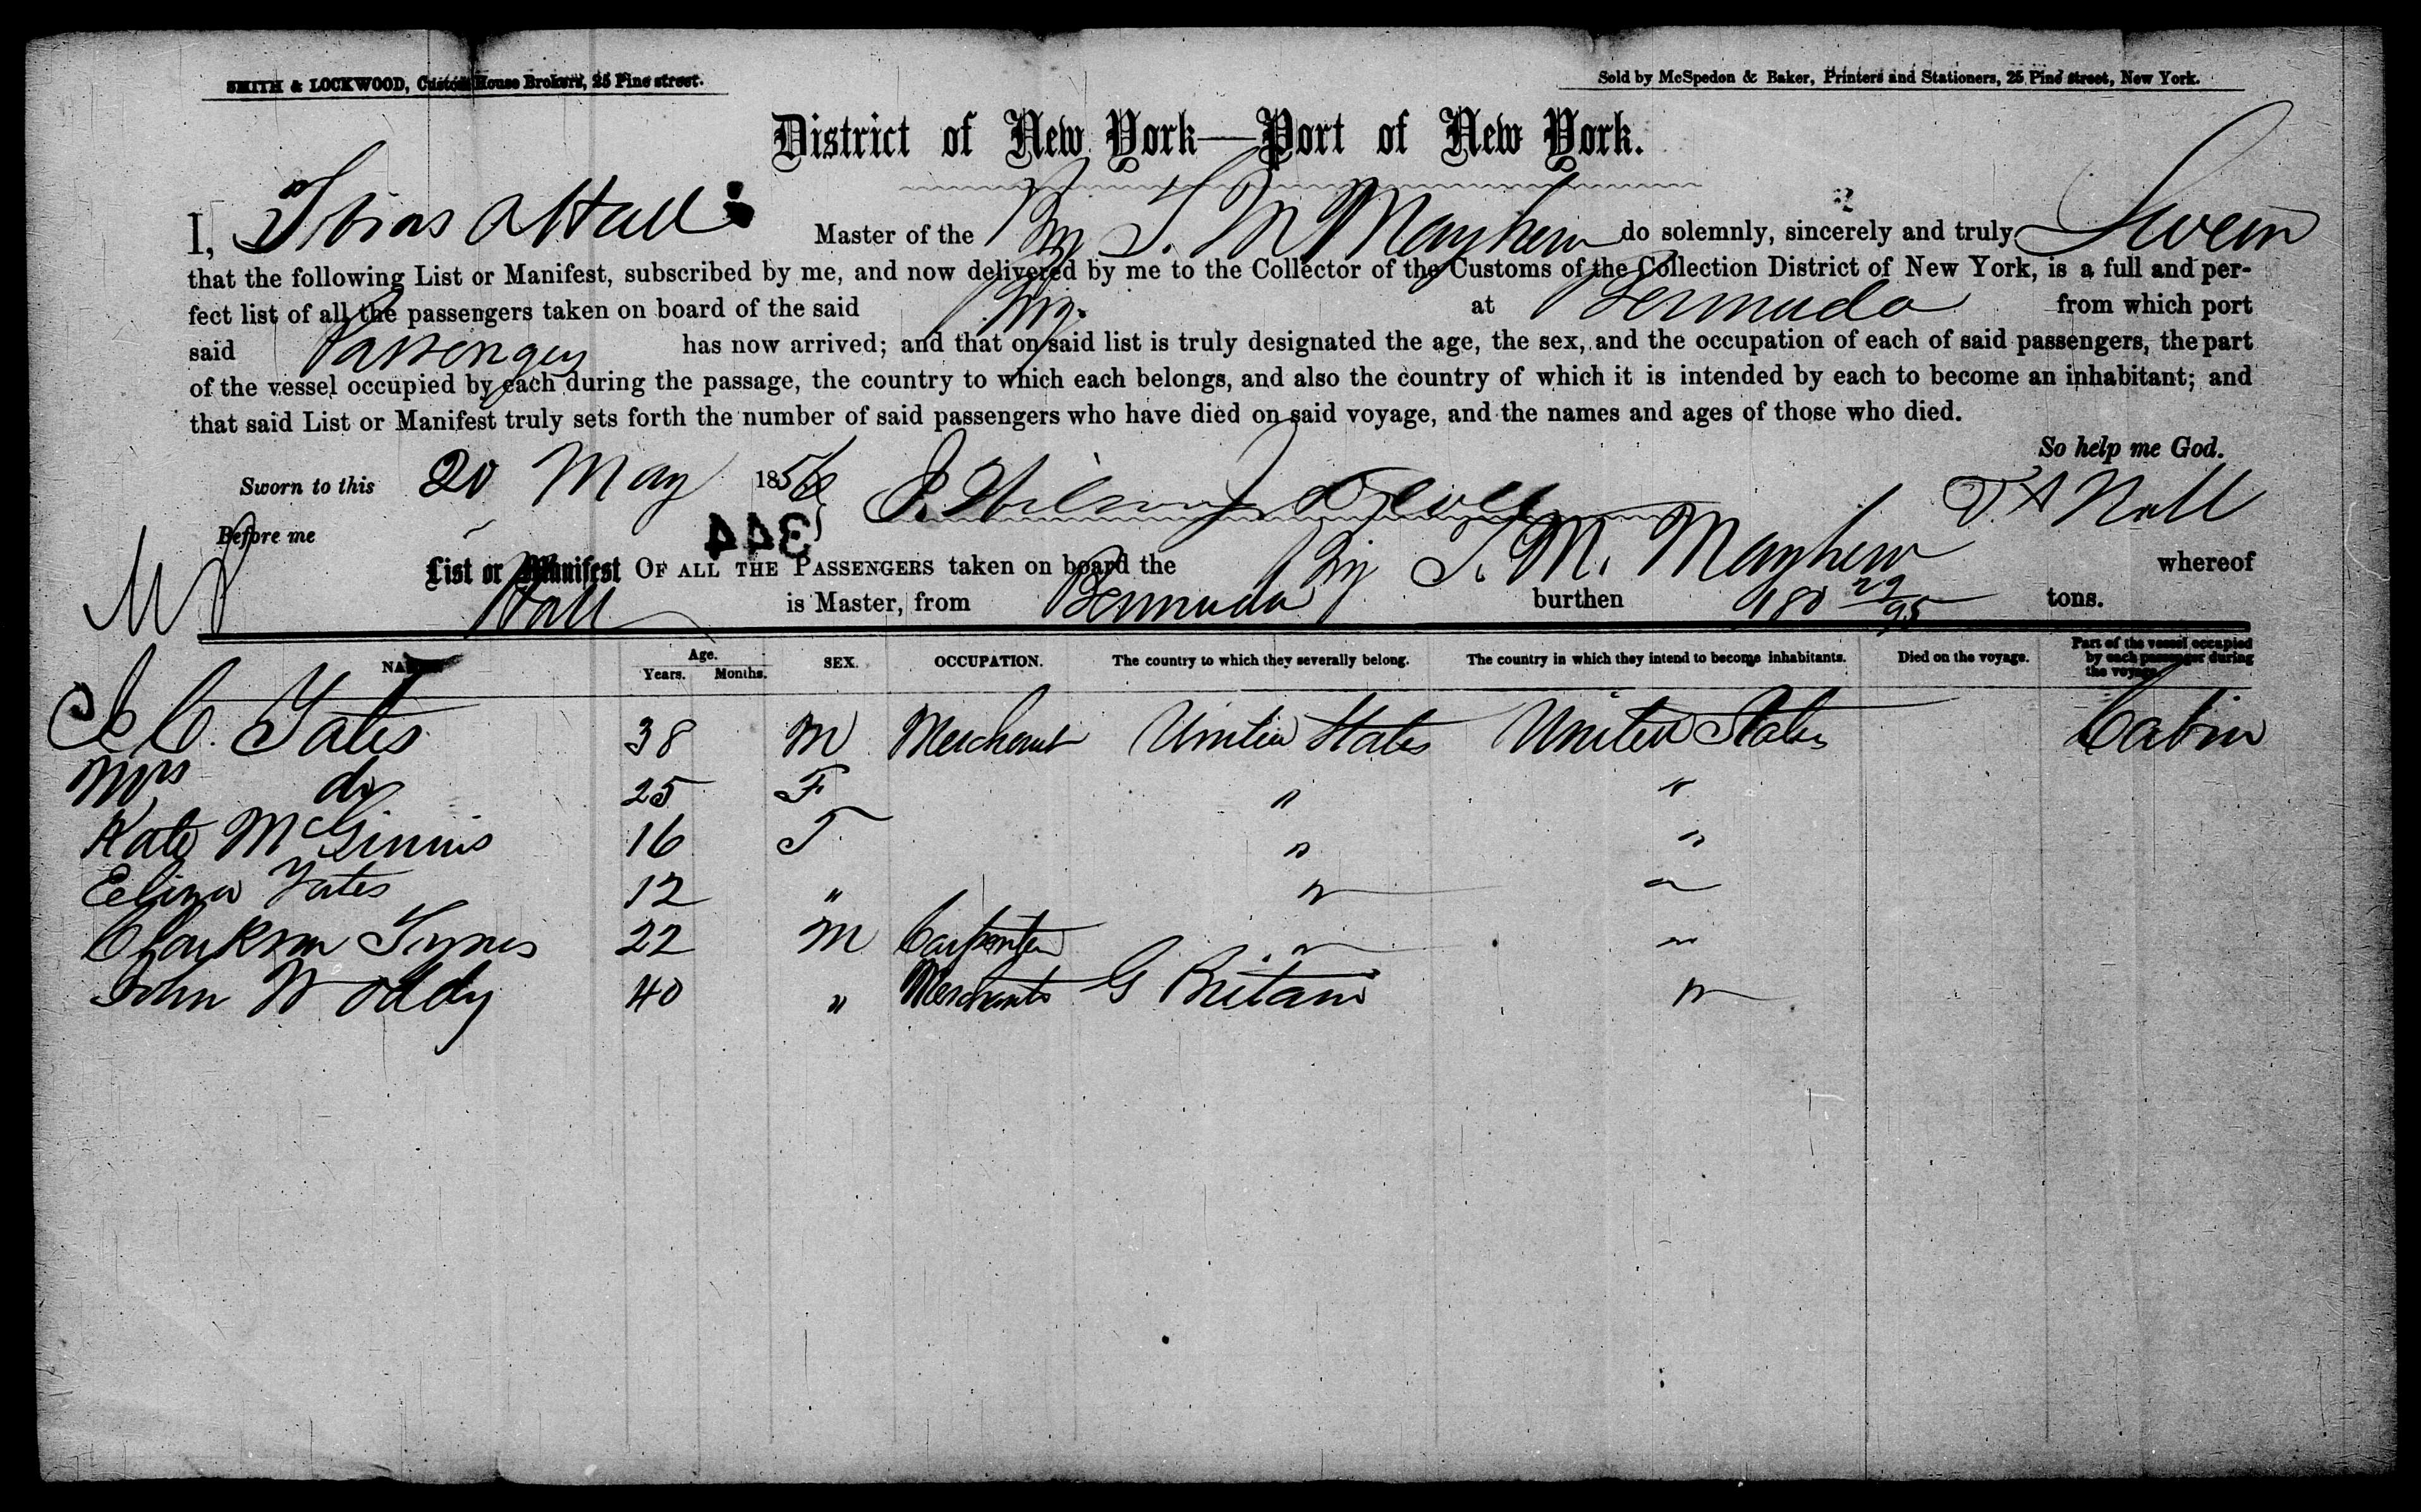 SMITH & LOCKWOOD, Custom House Brokers, 25 Pine street.
Sold by McSpedon & Baker, Printers and Stationers, 25 Pine street, New York.
District of New York—Port of New York.
I, Tobias A Hall Master of the Brig T. M Mayhew do solemnly, sincerely and truly Swear
that the following List or Manifest, subscribed by me, and now delivered by me to the Collector of the Customs of the Collection District of New York, is a full and per-
fect list of all the passengers taken on board of the said Brig at Bermuda from which port
said Passengers has now arrived; and that on said list is truly designated the age, the sex, and the occupation of each of said passengers, the part
of the vessel occupied by each during the passage, the country to which each belongs, and also the country of which it is intended by each to become an inhabitant; and
that said List or Manifest truly sets forth the number of said passengers who have died on said voyage, and the names and ages of those who died.
So help me God.
Sworn to this 20 May 1856 T. A Hall
Before me
344
List or Manifest OF ALL THE PASSENGERS taken on board the Brig T. M. Mayhew whereof
Hall is Master, from Bermuda burthen 180 29/95 tons.
NAMES Age. Years. Months. SEX. OCCUPATION. The country to which they severally belong. The country in which they intend to become inhabitants. Died on the voyage. Part of the vessel occupied by each passenger during the voyage.
C. Yates 38 M Merchant United States United States Cabin
Mrs do 25 F " "
Kate McGinnis 16 F " "
Yates 12 " " "
Clarkson Tynes 22 M Carpenter " "
John Woddy 40 " Merchants G Britain "